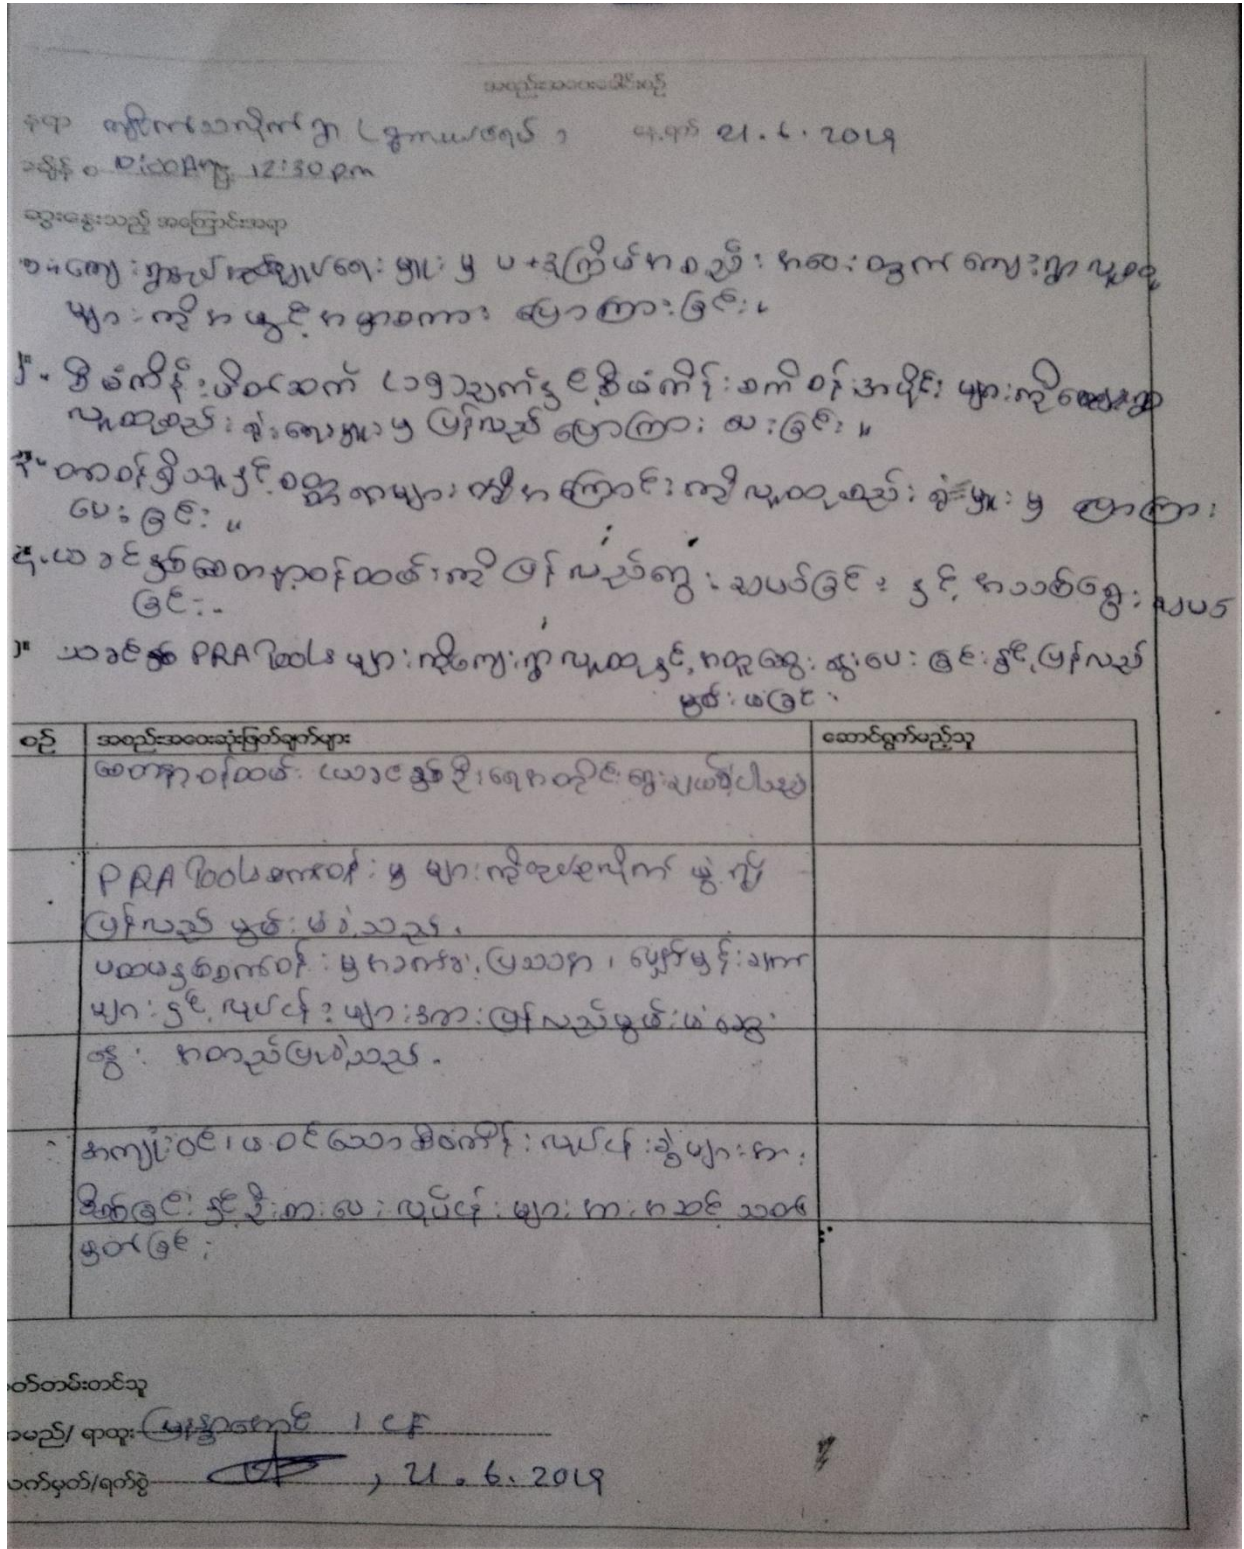 အစည်းအဝေးခေါင်းစဉ်
နေရာ ကျိုက်သလိုက်ရွာ ( ရွာကယ်ဇရပ် ) နေ့ရက် 21.6.2019
အချိန် 12:30 pm
ဆွေးနွေးသည့် အကြောင်းအရာ
၁။ ကျေးရွာအုပ်ချုပ်ရေးမှူးမှ ပ+ဒုကြိမ်အစည်းအဝေးတွက် ကျေးရွာလူထု
များကိုအဖွင့်အမှာစကား ပြောကြားခြင်း။
၂။ စီမံကိန်းမိတ်ဆက် (၁၅)ချက်နှင့်စီမံကိန်းစက်ဝန်းအပိုင်းများကိုကျေးရွာ
လူထုစည်းရုံးရေးမှူးမှ ပြန်လည် ပြောကြားပေးခြင်း။
၃။ တာဝန်ရှိသူနှင့်ဝတ္တရားများကိုအကြောင်းကိုလူထုစည်းရုံးမှူးမှ ပြောကြား
ပေးခြင်း။
၄။ ယခင်နှစ်စေတနာ့ဝန်ထမ်းကိုပြန်လည်ရွေး နှင့် အသစ်ရွေး
ခြင်း။
၅။ ယခင်နှစ် PRA Tools များကိုကျေးရွာလူထုနှင့်အတူဆွေးနွေးပေးခြင်းနှင့်ပြန်လည်
မွမ်းမံခြင်း
စဉ် အစည်းအဝေးဆုံးဖြတ်ချက်များ ဆောင်ရွက်မည့်သူ
စေတနာ့ဝန်ထမ်း ယခင်နှစ်ဦးရေအတိုင်းရွေးချယ်ခဲ့ပါသည်
PRA Tools စက်ဝန်းမှ များကိုထုပ်စုလိုက် ဖွဲ့၍
ပြန်လည် မွမ်းမံခဲ့သည်။
ပထမနှစ်စက်ဝန်းမှအခက်ခဲ၊ ပြဿနာ၊ မျှော်မှန်းချက်
များနှင့် လုပ်ငန်းများအားပြန်လည်မွမ်းမံဆွေး
နွေး အတည်ပြုခဲ့သည်။
အကျုံးဝင်၊ မဝင်သောစီမံကိန်းလုပ်ငန်းခွဲများအား
စိစစ်ခြင်းနှင့်ဦးစားပေးလုပ်ငန်းများအားအဆင့်သတ်
မှတ်ခြင်း
တ်တမ်းတင်သူ
အမည်/ ရာထူး မြနန္ဒာအောင် ၊ CF
လက်မှတ်/ရက်စွဲ , 21.6.2019